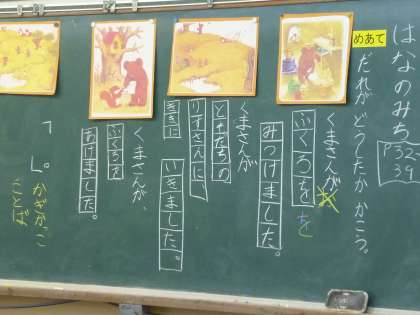 はなのみち
P32~39
めあて
だれが どうしたか かこう。
くまさんが、
ふくろを を
みつけました。
くまさんが
ともだちの
りすさんに、
ききに
いきました。
くまさんが、
ふくろを
あけました。
「 」。かぎかっこ
ことば